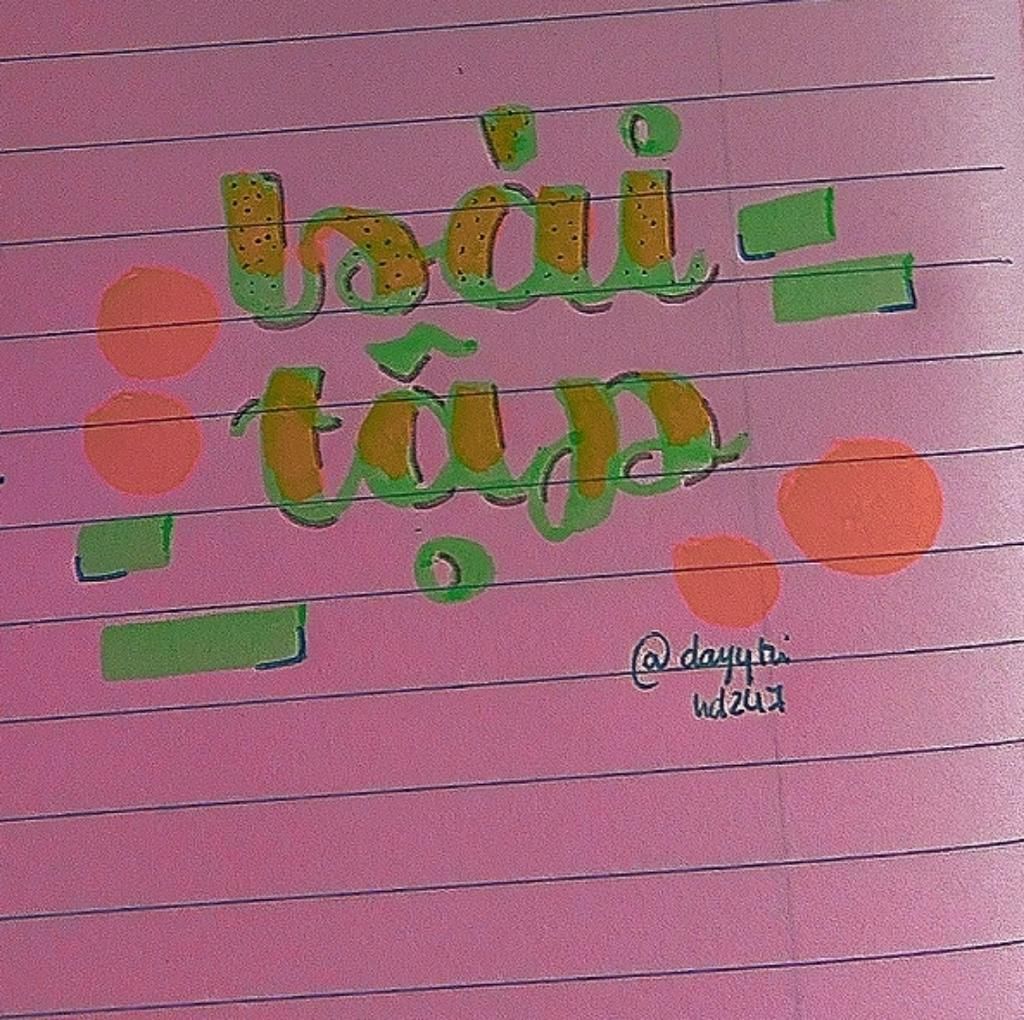 bài
tập
@dayytri
hd247